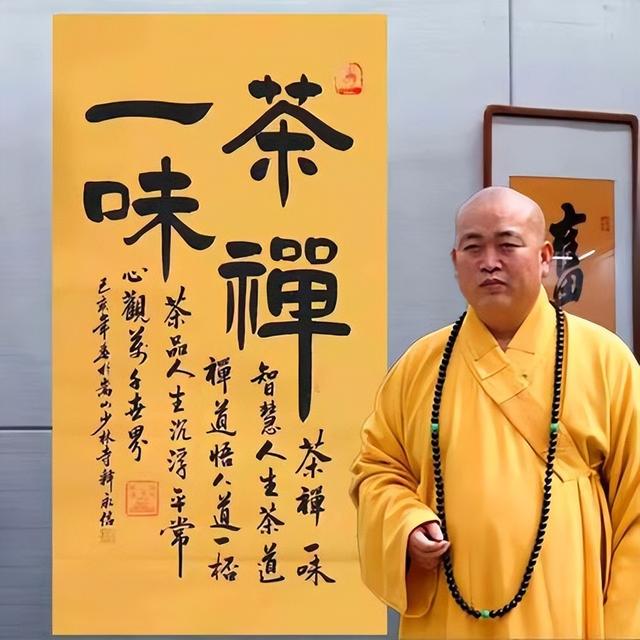 茶禪
一味
茶禪一味
智慧人生茶道
禪道悟人道一杯
茶品人生沉浮平常
心觀萬千世界
己亥年於嵩山少林寺釋永信